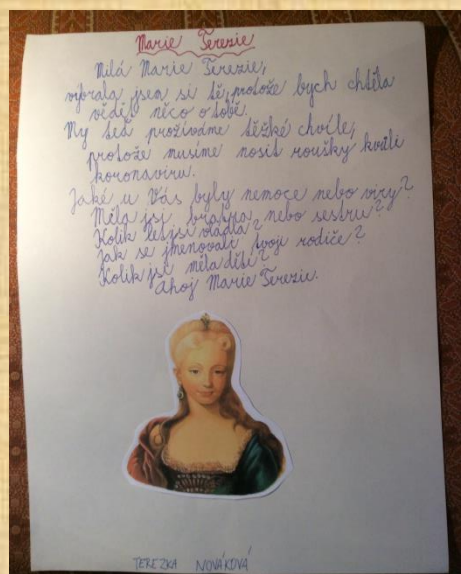 Marie Terezie
Milá Marie Terezie,
vybrala jsem si tě, protože bych chtěla
vědět něco o tobě.
My teď prožíváme těžké chvíle,
protože musíme nosit roušky kvůli
koronaviru.
Jaké u Vás byly nemoce nebo viry?
Měla jsi bratra nebo sestru?
Kolik let jsi vládla?
Jak se jmenovali tvoje rodiče?
Kolik jsi měla dětí?
Ahoj Marie Terezie.
TEREZKA NOVÁKOVÁ